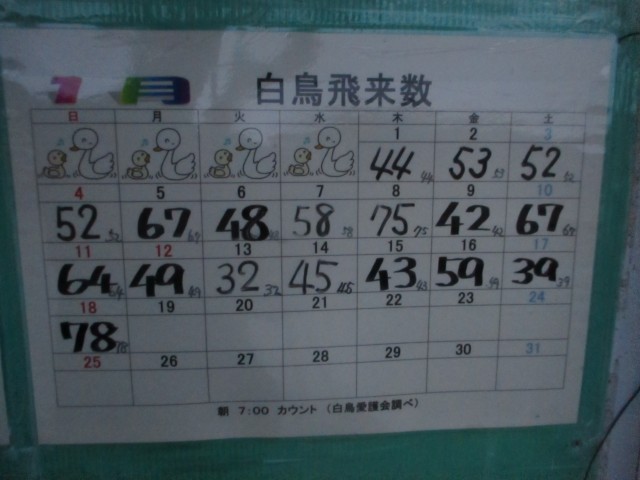 1月 白鳥飛来数
日 月 火 水 木 金 土
1 2 3
44 44 53 53 52 52
4 5 6 7 8 9 10
52 52 67 48 58 58 75 75 42 42 67
11 12 13 14 15 16 17
64 64 49 49 32 32 45 45 43 43 59 59 39 39
18 19 20 21 22 23 24
78 78
25 26 27 28 29 30 31
朝 7:00 カウント (白鳥愛護会調べ)